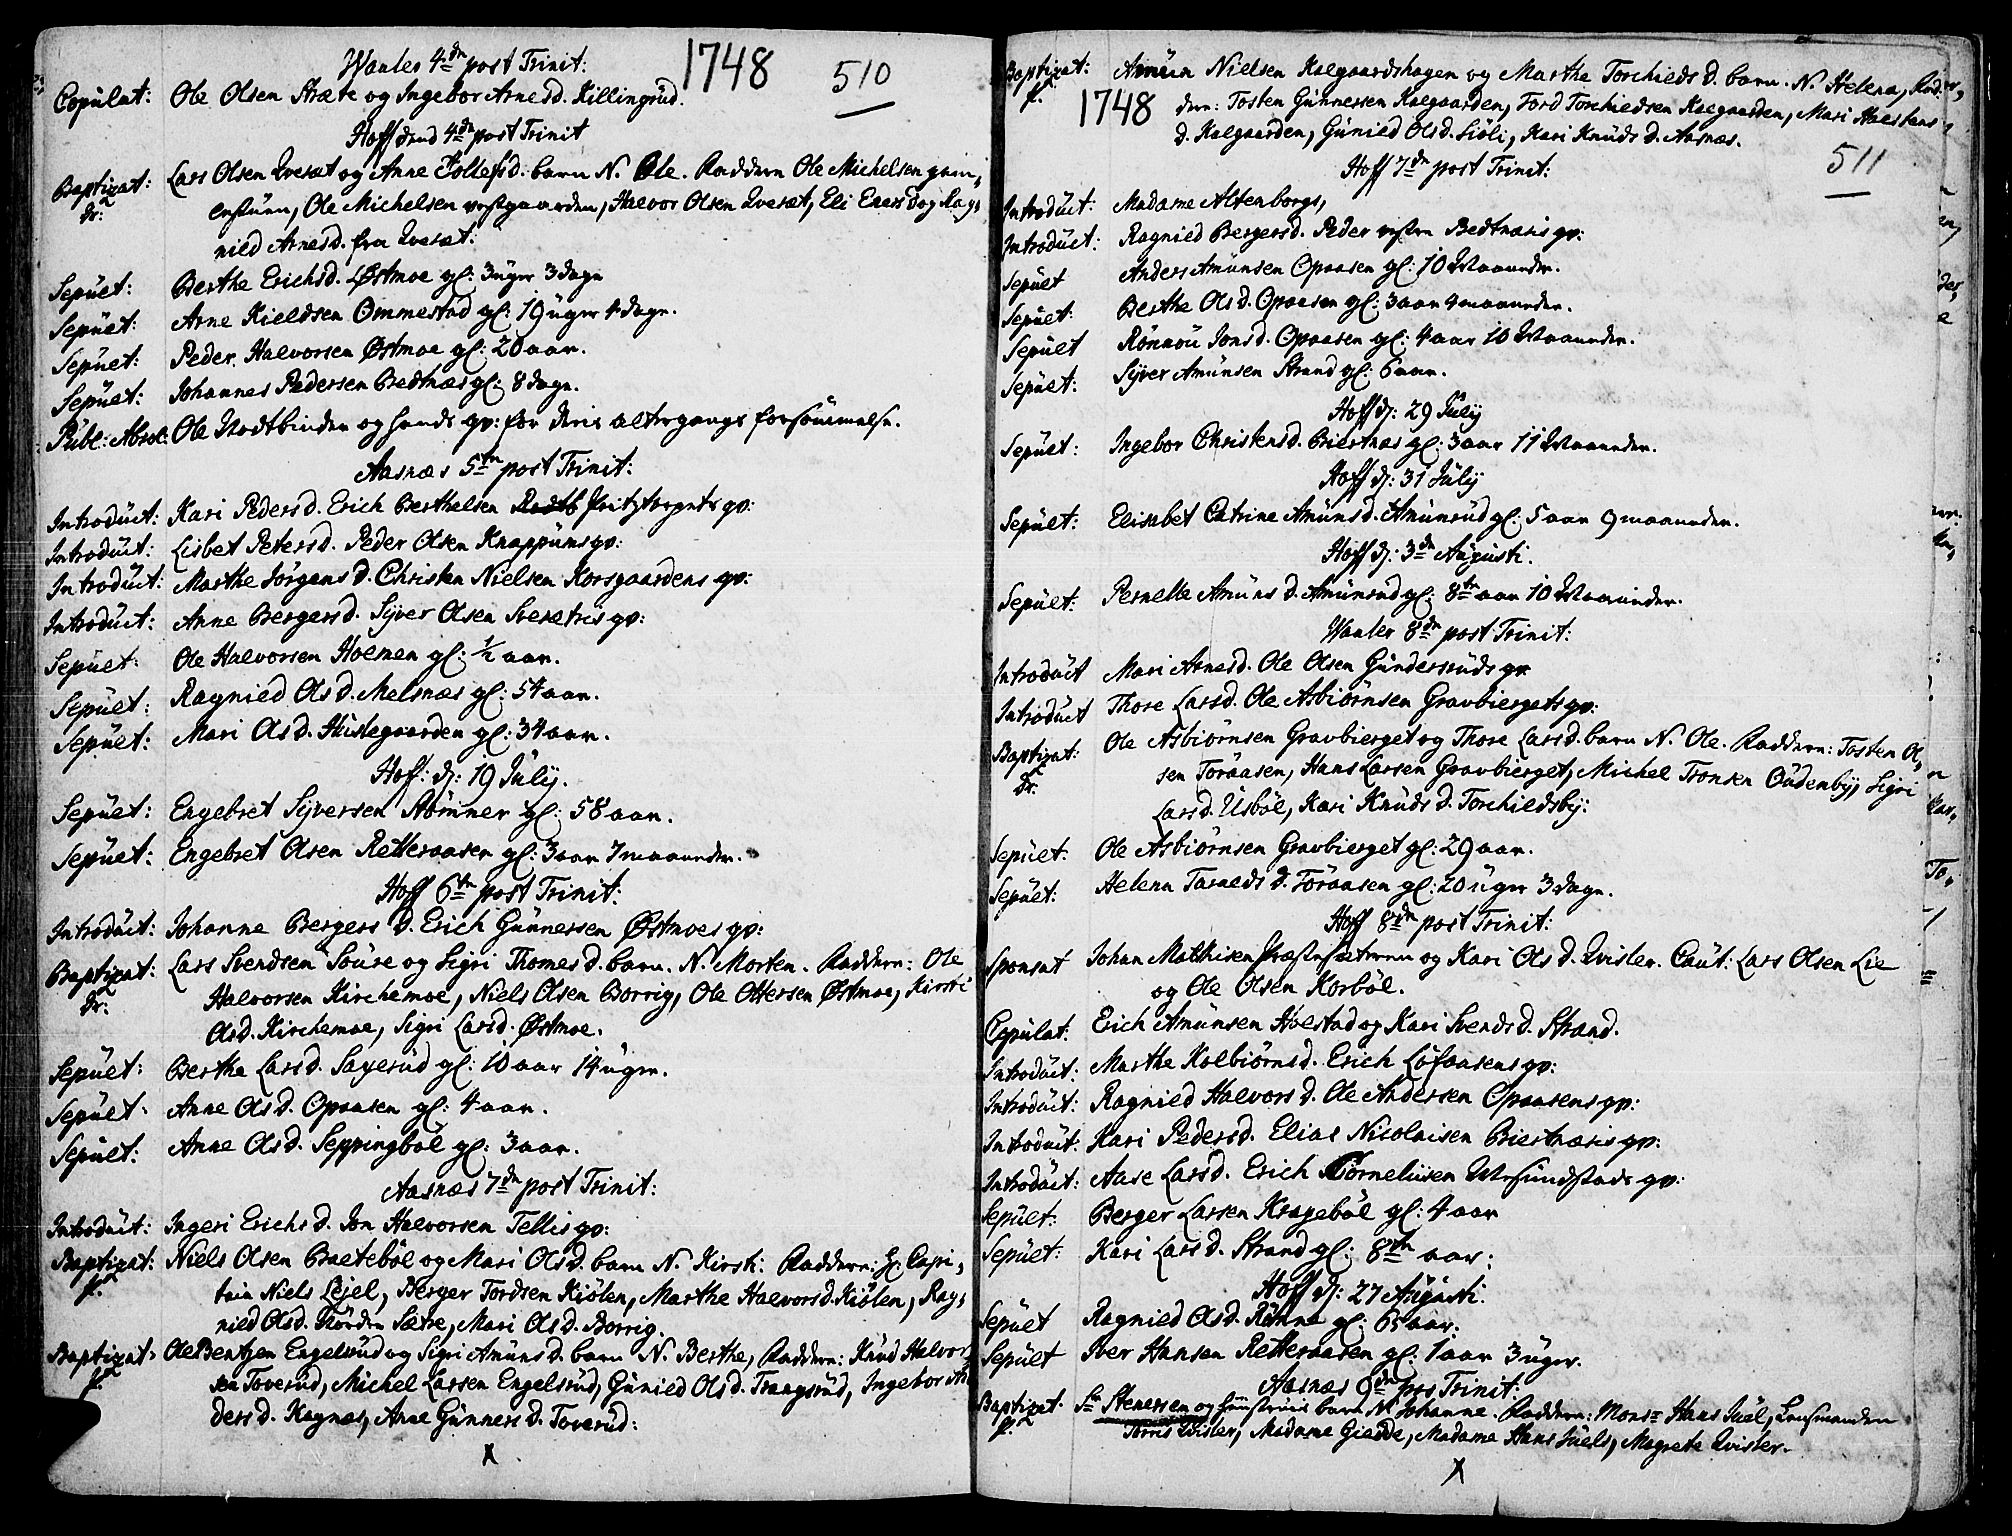 1748
510
Waaler 4de post Trinit:
Copulat: Ole Olsen Stræte og Ingebor Arnesd. Killingrud.
Hoff dend 4de post Trinit
Baptizat: Lars Olsen Qveset og Anne Tollefsd. barn N. Ole. Faddere Ole Michelsen gam,
dr. enstuen, Ole Michelsen vestgaarden, Halvor Olsen Qveset, Eli Enersd og Rag,
nild Arnesd. fra Qveset.
Sepuet: Berthe Erichsd. Østmoe gl: 3 uger 3 dage
Sepuet: Arne Kieldsen Ommestad gl: 19 uger 4 dage.
Sepuet: Peder Halvorsen Østmoe gl: 20 aar.
Sepuet: Johannes Pedersen Bredtnæs gl: 8 dage.
Publ: Absol: Ole Nodtbinder og hands qv: for deris altergangs forsømmelse.
Aasnæs 5te post Trinit:
Introduct: Kari Pedersd. Erich Berthelsen Pritztorgets qv:
Introduct: Lisbet Petersd. Peder Olsen Knappuns qv:
Introduct: Marthe Jørgensd. Christen Nielsen Korsgaardens qv:
Introduct: Anne Bergersd. Syver Olsen Sveætris qv:
Sepuet: Ole Halvorsen Holmen gl: 1/2 aar.
Sepuet: Ragnied Olsd. Melsnæs gl: 54 aar.
Sepuet: Mari Olsd. Huusegaarden gl: 34 aar.
Hof: d: 19 July.
Sepuet: Engebret Syversen Rømner gl: 58 aar.
Sepuet: Engebret Olsen Retteraasen gl: 3 aar 7 maaneder.
Hoff 6te post Trinit:
Introduct: Johanne Bergers D. Erich Gunnersen Østmoes qv:
Baptizat: Lars Svendsen Soure og Sigri Thomes d. barn. N. Morten. Faddere: Ole
dr. Halvorsen Kirchemoe, Niels Olsen Borrig, Ole Ottersen Østmoe, Kirsti
Olsd. Kirchemoe, Sigri Larsd. Østmoe.
Sepuet: Berthe Larsd. Sagerud gl: 10 aar 14 uger.
Sepuet: Anne Olsd. Opaasen gl: 4 aar.
Sepuet: Anne Olsd. Seppingbøl gl: 3 aar.
Aasnæs 7de post Trinit:
Introduct: Ingeri Erichsd. Jon Halvorsen Tellis qv:
Baptizat: Niels Olsen Braatebøl og Mari Olsd. barn N. Kirsti: Faddere: Hr Capi,
p. tain Niels Lejel, Berger Tordsen Kiølen, Marthe Halvorsd. Kiølen, Rag,
nild Olsd. Nørden Sætre, Mari Olsd. Borrig.
Baptizat: Ole Bentzen Engelsrud og Sigri Amunsd. barn N. Berthe, Faddere: Knud Halvor,
p. sen Toverud, Michel Larsen Engelsrud, Gunied Olsd. Trangsrud, Ingebor An,
ders d. Kagnæs, Anne Gunners d. Toverud:
x
Baptizat: Amuen Nielsen Kalgaardshagen og Marthe Torchields d. barn. N. Helena, Fad,
p. 1748 dere: Tosten Gunnersen Kalgaarden, Tord Torchieldsen Kalgaarden, Mari Halstens
d. Kalgaarden, Gunied Olsd. Liøli, Kari Knuds d. Aasnæs.
511
Hoff 7de post Trinit:
Introduct: Madame Altenborgs,
Introduct: Ragnied Bergersd. Peder vesten Bredtnæsis qv:
Sepuet Anders Amunsen Opaasen gl: 10 Maaneder.
Sepuet: Berthe Olsd. Opaasen gl: 3 aar 4 maaneder.
Sepuet Rønnou Jonsd. Opaasen gl: 4 aar 10 Maaneder.
Sepuet: Syver Amunsen Strand gl: 6 aar.
Hoff d: 29 July
Sepuet: Ingebor Christensd. Briestnæs gl: 3 aar 11 Maaneder.
Hoff d: 31 July
Sepuet: Elisabet Catrine Amunsd. Amunrud gl: 5 aar 9 maaneder.
Hoff d: 3de Augusti.
Sepuet: Pernelle Amuns d. Amunrud gl: 8te aar 10 Maaneder.
Waaler 8de post Trinit:
Introduct Mari Arnesd. Ole Olsen Gundersruds qv
Introduct Thore Larsd. Ole Asbiørnsen Gravbiergets qv:
Baptizat: Ole Asbiørnsen Gravbierget og Thore Larsd. barn N. Ole. Faddere: Tosten Ol,
dr. sen Toraasen, Hans Larsen Gravbierget, Michel Tronsen Oudenby, Sigri
Larsd. Usbøl, Kari Knuds d. Torchildsby:
Sepuet: Ole Asbiørnsen Gravbierget gl: 29 aar.
Sepuet: Helena Taralds d. Toraasen gl: 20 uger 3 dage.
Hoff 8de post Trinit:
Sponsat Johan Mathisen Præstesæteren og Kari Ols d. Qvisler. Caut: Lars Olsen Lie
og Ole Olsen Korbøl.
Copulat: Erich Amunsen Holstad og Kari Svends d. Strand.
Introduct: Marthe Kolbiørnsd. Erich Løfaasens qv:
Introduct: Ragnied Halvors d. Ole Andersen Opaasens qv:
Introduct. Kari Pedersd. Elias Nicolaisen Briestnæsis qv:
Introduct: Aase Larsd. Erich Cornelisen qv:
Sepuet: Berger Larsen Kragebøl gl: 4 aar
Sepuet: Kari Lars d. Strand gl: 8te aar:
Hoff d: 27 Augusti.
Sepuet Ragnied Olsd. Rønne gl: 65 aar.
Sepuet Iver Hansen Retteraasen gl: 1 aar 3 uger.
Aasnæs 9de pos Trinit:
Baptizat. Sr Stenersen og Hustruis barn N. Johanne. Faddere: Monsr Hans Juel, Lensmanden
p. Tørris Qvisler, Madame Giedde, Madame Hans Juels, Magrete Qvisler.
x